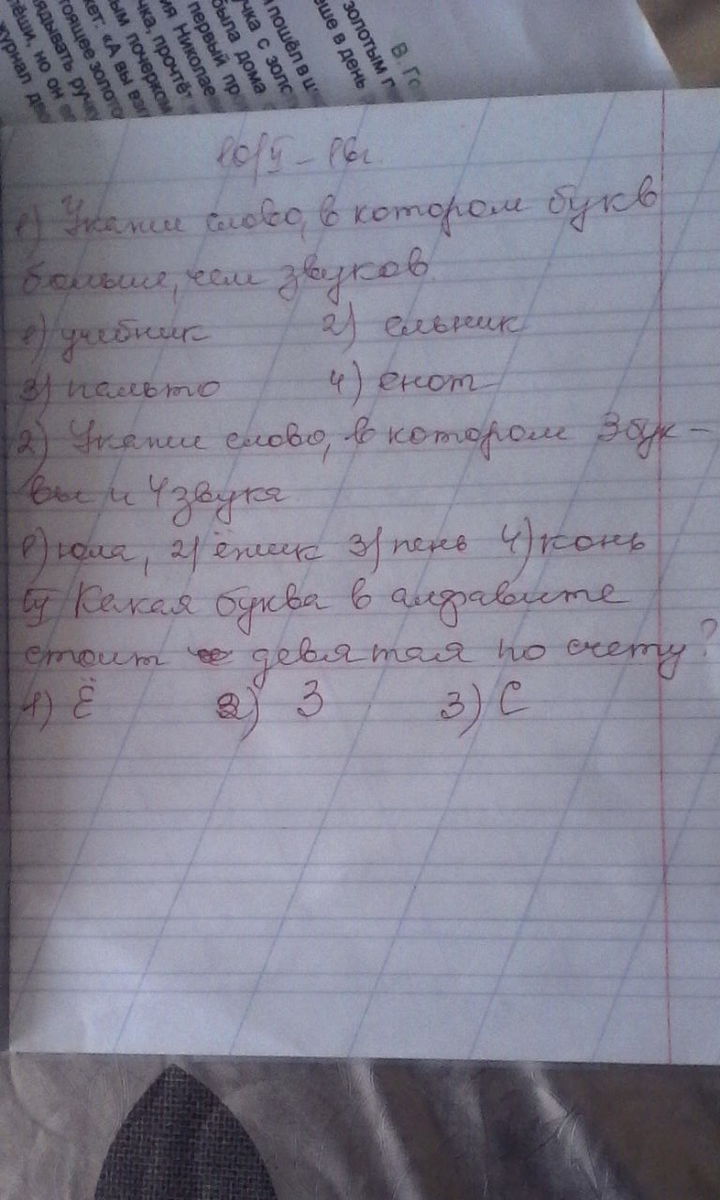 В. Го
золотым п
еше в день
пошёл в ш
учка с золо
была дома
первый пр
ия Николае
чка, прочтё
ым почерком
жет: «А вы вз
стоящее золото
лядывать ручку
лёши, но он
журнал дв
10/V – 16г.
1) Укажи слово, в котором букв
больше, чем звуков.
1) учебник 2) ельник
3) пальто 4) енот
2) Укажи слово, в котором 3 бук-
вы и 4 звука
1) юла, 2) ёжик 3) пень 4) конь
Какая буква в алфавите
стоит девятая по счету?
1) Ё 2) З 3) С